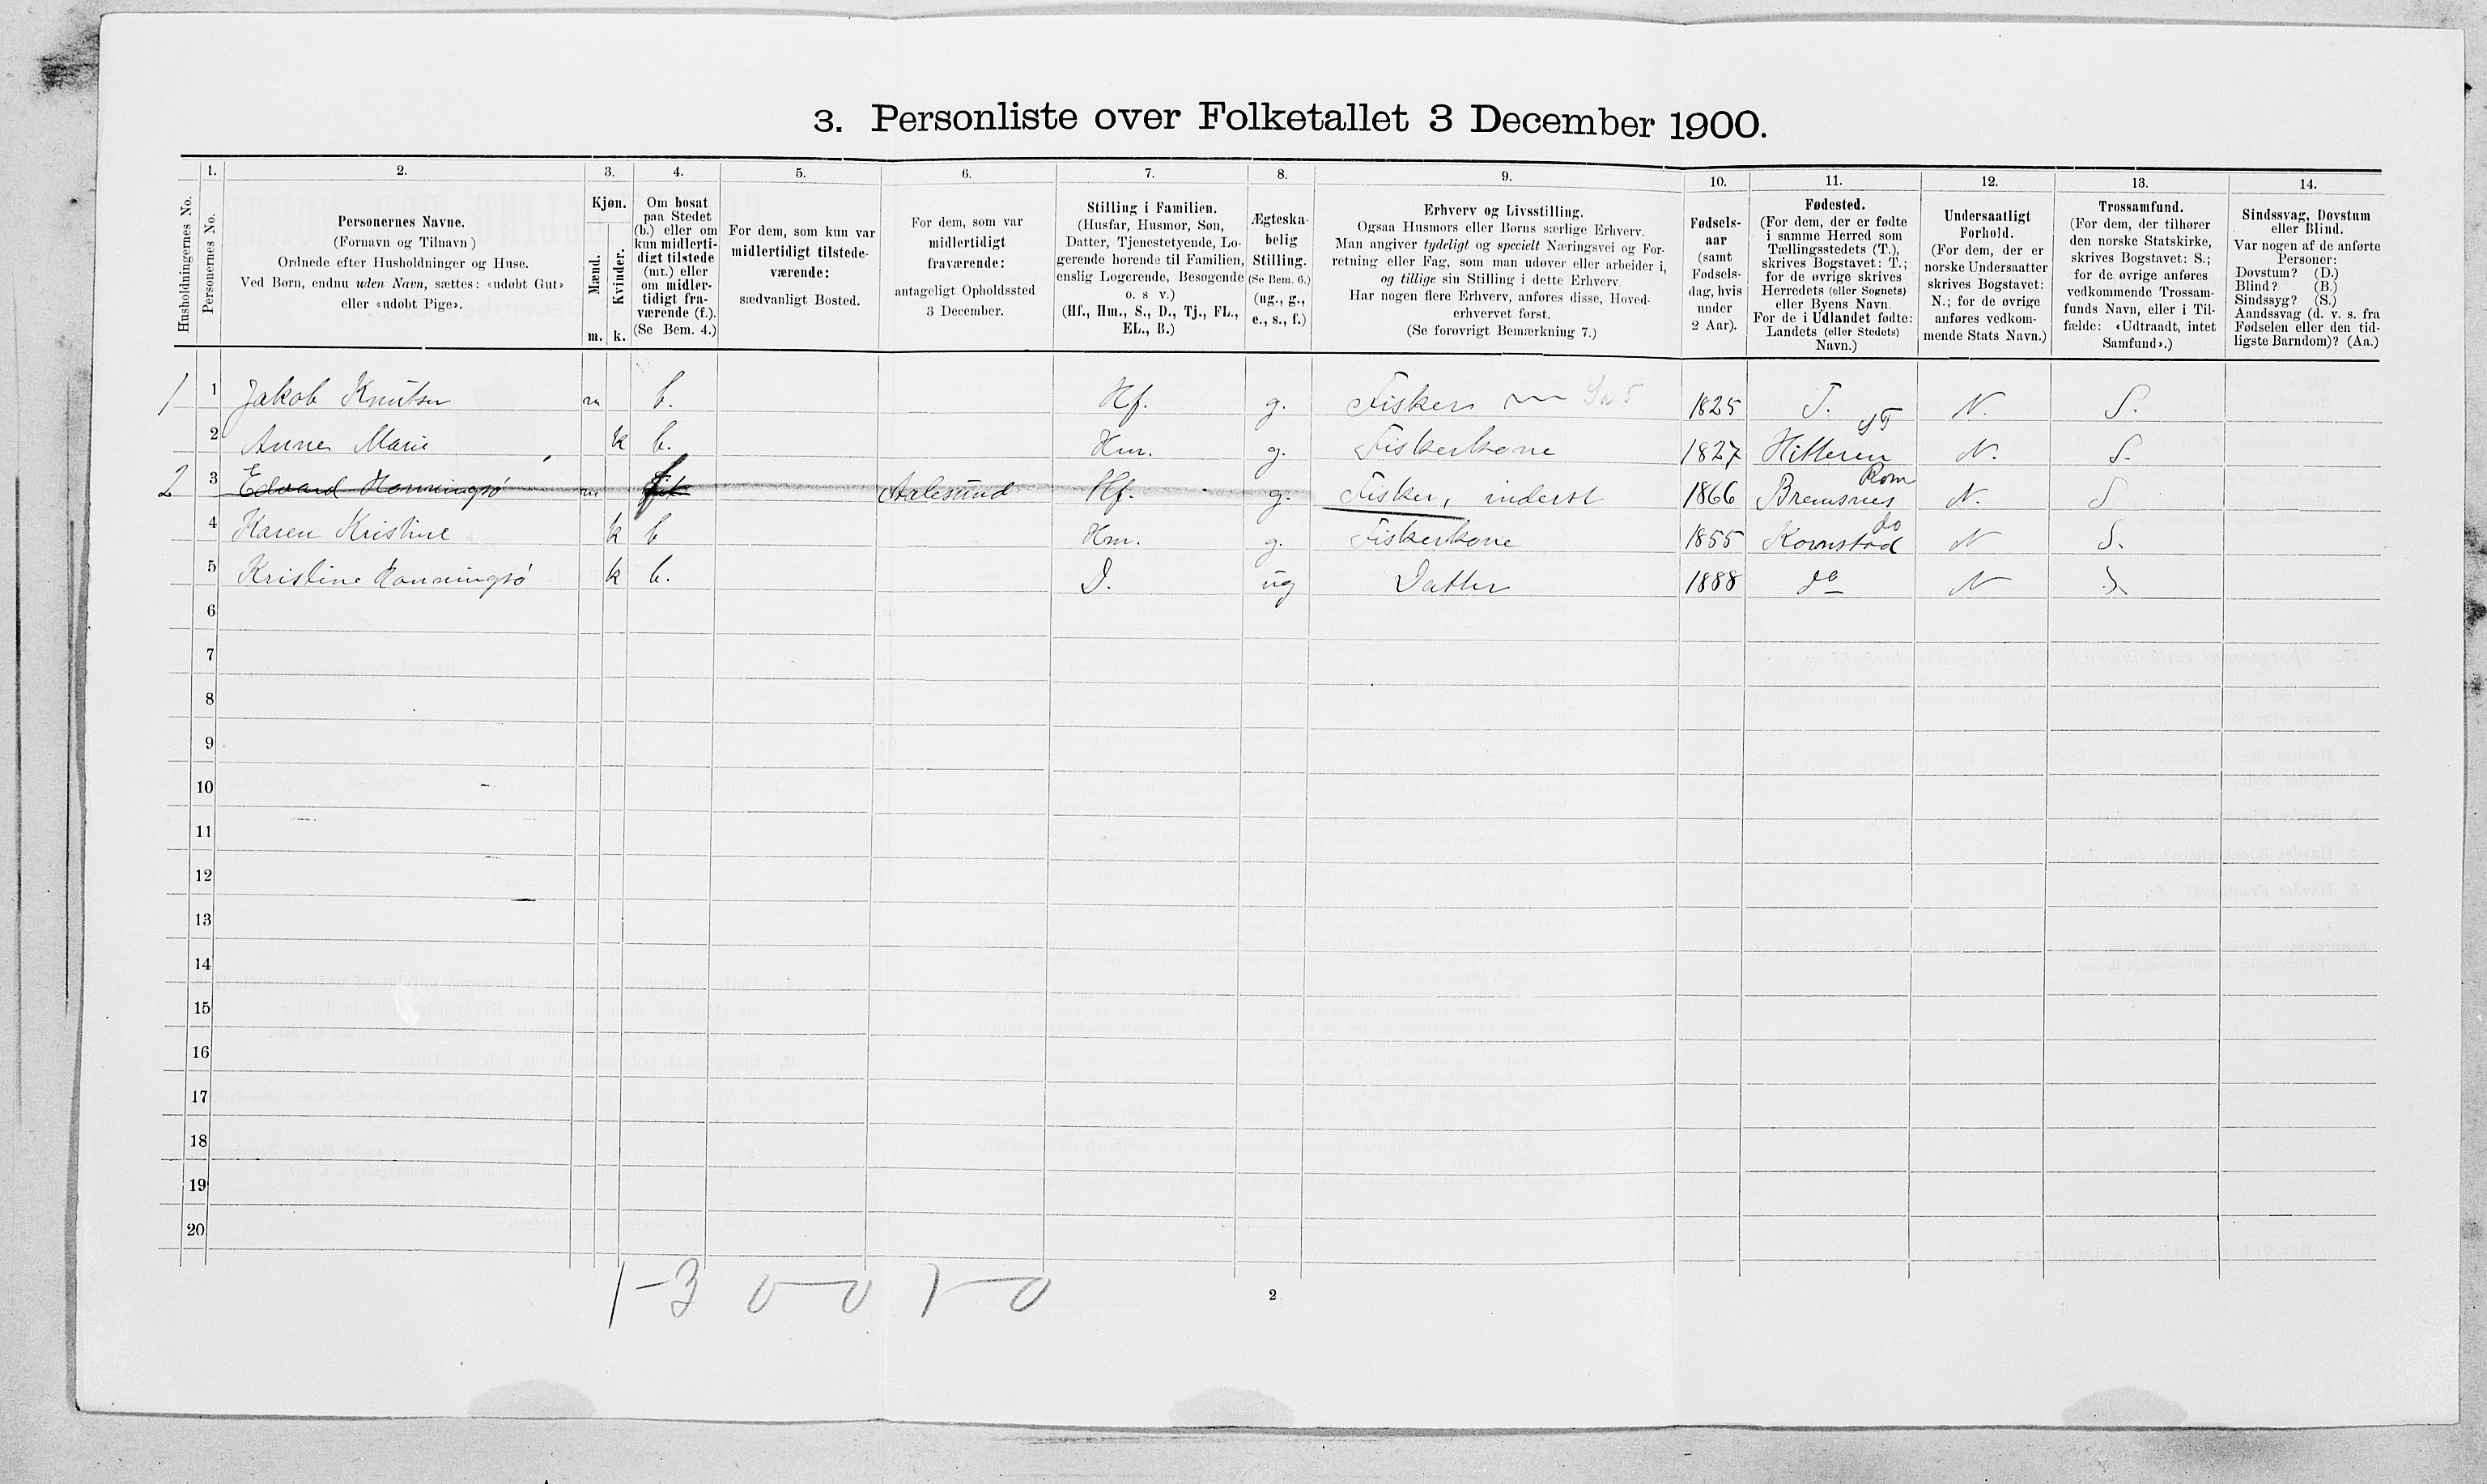 3. Personliste over Folketallet 3 December 1900.
1. 2. 3. 4. 5. 6. 7. 8. 9. 10. 11. 12. 13. 14.
Husholdningernes No.
Personernes No.
Personernes Navne.
(Fornavn og Tilnavn)
Ordnede efter Husholdninger og Huse.
Ved Børn, endnu uden Navn, sættes: «udøbt Gut»
eller «udøbt Pige».
Kjøn.
Mænd.
Kvinder.
m. k.
Om bosat
paa Stedet
(b.) eller om
kun midlerti-
digt tilstede
(mt.) eller
om midler-
tidigt fra-
værende (f.).
(Se Bem. 4.)
For dem, som kun var
midlertidigt tilstede-
værende:
sædvanligt Bosted.
For dem, som var
midlertidigt
fraværende:
antageligt Opholdssted
3 December.
Stilling i Familien.
(Husfar, Husmor, Søn,
Datter, Tjenestetyende, Lo-
gerende hørende til Familien,
enslig Logerende, Besøgende
o. s v.)
(Hf., Hm., S., D., Tj., FL.,
EL., B.)
Ægteska-
belig
Stilling.
(Se Bem. 6.)
(ug., g.,
e., s., f.)
Erhverv og Livsstilling.
Ogsaa Husmors eller Børns særlige Erhverv.
Man angiver tydeligt og specielt Næringsvei og For-
retning eller Fag, som man udøver eller arbeider i,
og tillige sin Stilling i dette Erhverv.
Har nogen flere Erhverv, anføres disse, Hoved-
erhvervet først.
(Se forøvrigt Bemærkning 7.)
Fødsels-
aar
(samt
Fødsels-
dag, hvis
under
2 Aar).
Fødested.
(For dem, der er fødte
i samme Herred som
Tællingsstedets (T.),
skrives Bogstavet: T.;
for de øvrige skrives
Herredets (eller Sognets)
eller Byens Navn.
For de i Udlandet fødte:
Landets (eller Stedets)
Navn.)
Undersaatligt
Forhold.
(For dem, der er
norske Undersaatter
skrives Bogstavet:
N.; for de øvrige
anføres vedkom-
mende Stats Navn.)
Trossamfund.
(For dem, der tilhører
den norske Statskirke,
skrives Bogstavet: S.;
for de øvrige anføres
vedkommende Trossam-
funds Navn, eller i Til-
fælde: «Udtraadt, intet
Samfund».)
Sindssvag, Døvstum
eller Blind.
Var nogen af de anførte
Personer:
Døvstum? (D.)
Blind? (B.)
Sindssyg? (S.)
Aandssvag (d. v. s. fra
Fødselen eller den tid-
ligste Barndom)? (Aa.)
1 1 Jakob Knutsen m b. Hf. g. Fisker 1825 T. N. S.
2 Anne Marie k b. Hm. g. Fiskerkone 1827 Hitteren ST N. S.
2 3 Edvard Honningsø m Aalesund Hf. g. Fisker, inderst 1866 Bremsnes Rom N. S
4 Karen Kristine k b Hm. g. Fiskerkone 1855 Kornstad do N S.
5 Kristine Honningsø k b. D. ug Datter 1888 do N S.
6
7
8
9
10
11
12
13
14
15
16
17
18
19
20
1-3 0-0 1-0
2